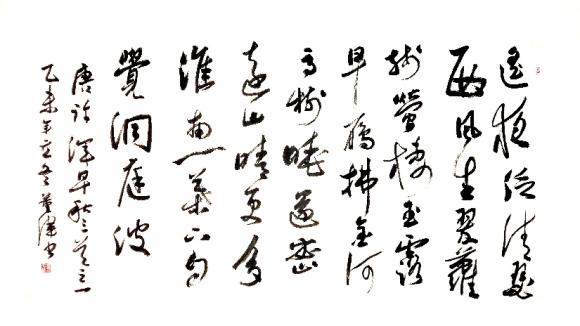 遙夜泛清瑟
西风生翠蘿
残螢棲玉露
早雁拂金河
高樹曉還密
遠山晴更多
淮南一葉下自
覺洞庭波
唐許渾早秋三首之一
乙未年立冬董书